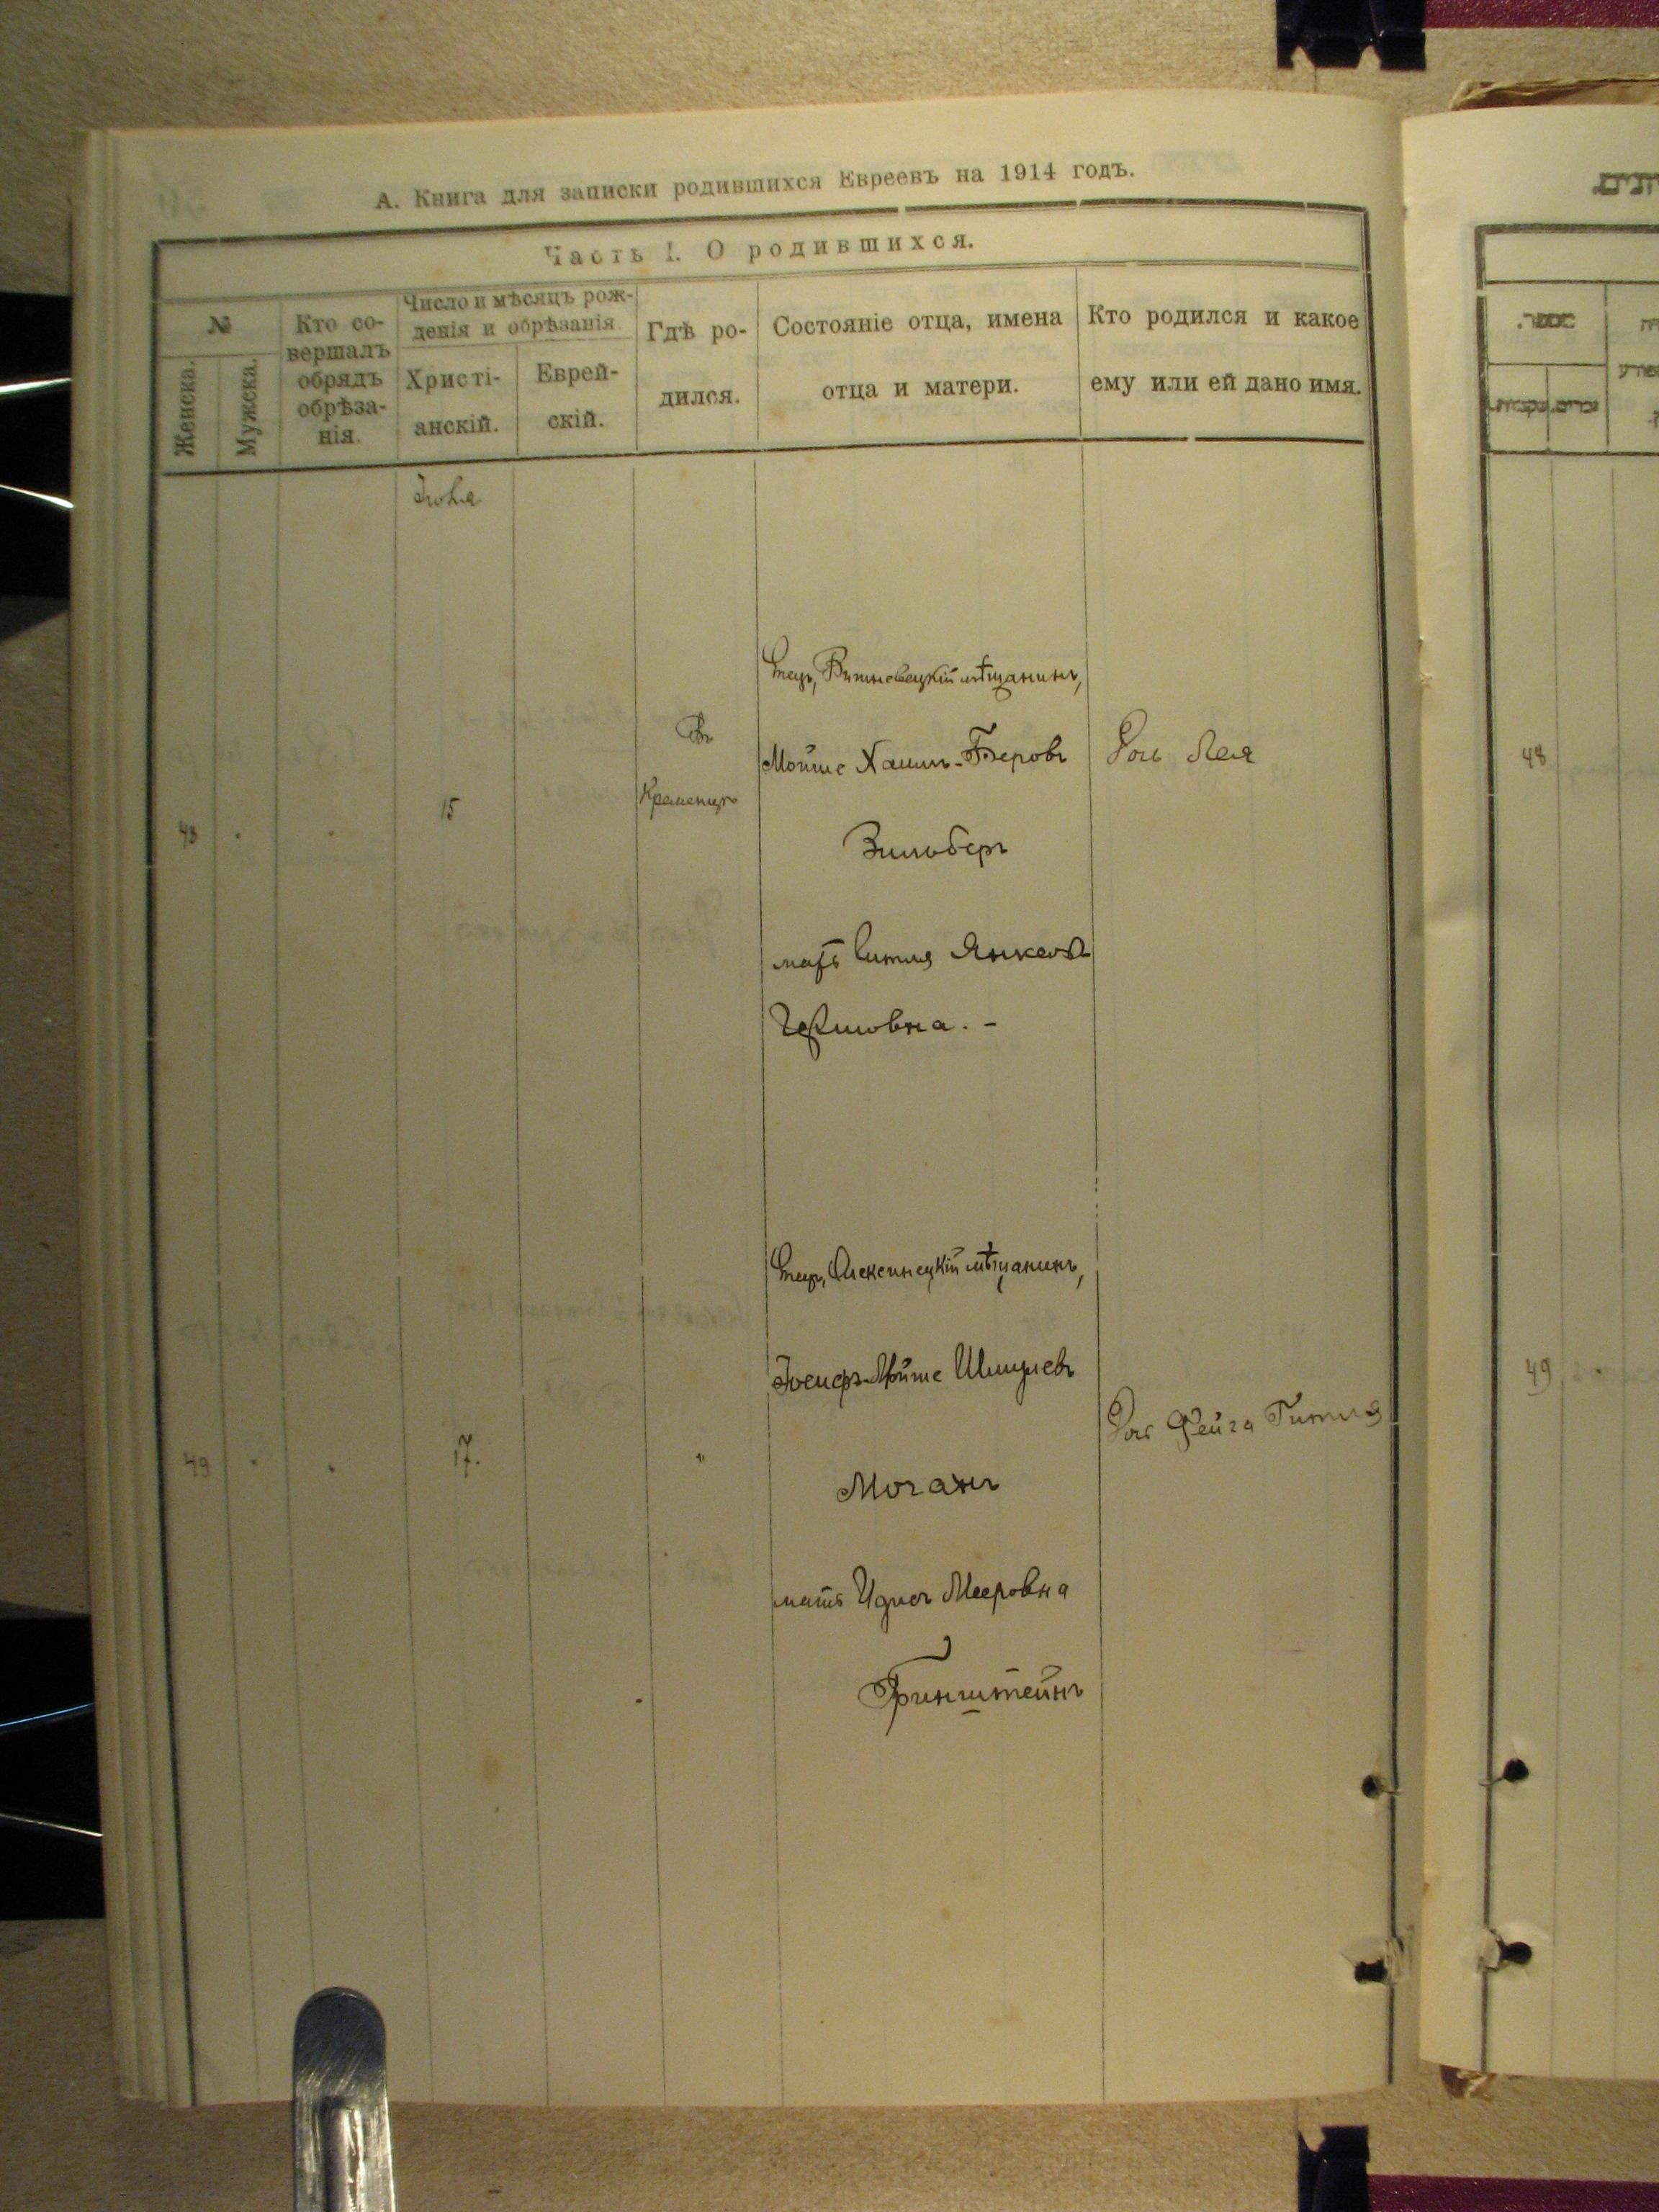 А. Книга для записки родившихся Евреевъ на 1914 годъ.
Часть I. О родившихся.
№
Женска.
Мужска.
Кто со-
вершалъ
обрядъ
обрѣза-
нія.
Число и мѣсяцъ рож-
денія и обрѣзанія
Христі-
анскій.
Еврей-
скій.
Гдѣ ро-
дился.
Состояніе отца, имена
отца и матери.
Кто родился и какое
ему или ей дано имя.
48
15
Въ
Кременцѣ
Отецъ, Вишневецкій мѣщанинъ,
Мойше Хаимъ-Беровъ
Зильберъ
мать Янкель
Гершовна. -
Дочь Лея
49
17.
"
Отецъ, Олексинецкій мѣщанинъ,
Іосифъ-Мойше Шмулевъ
Моганъ
мать Идесъ Мееровна
Гринштейнъ
Дочь Фейга Гитля
48
49
מספר.
זכרים
נקבות.